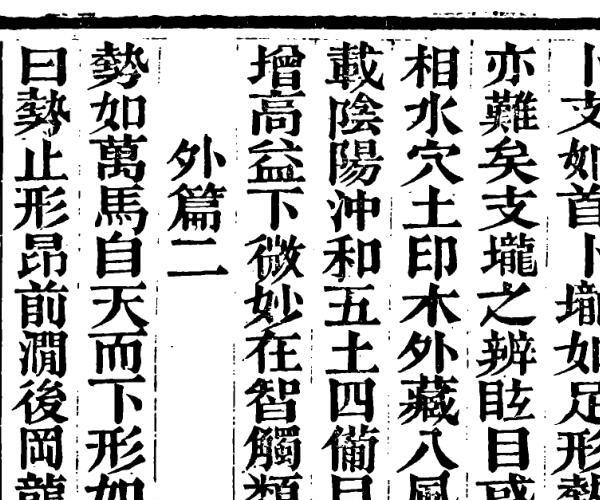 卜支如首卜壠如足形勢
亦難矣支壠之辨眩目惑
相水穴土印木外藏八風
載陰陽沖和五土四備日
增高益下微妙在智觸類
外篇二
勢如萬馬自天而下形如
曰勢止形昂前澗後岡龍